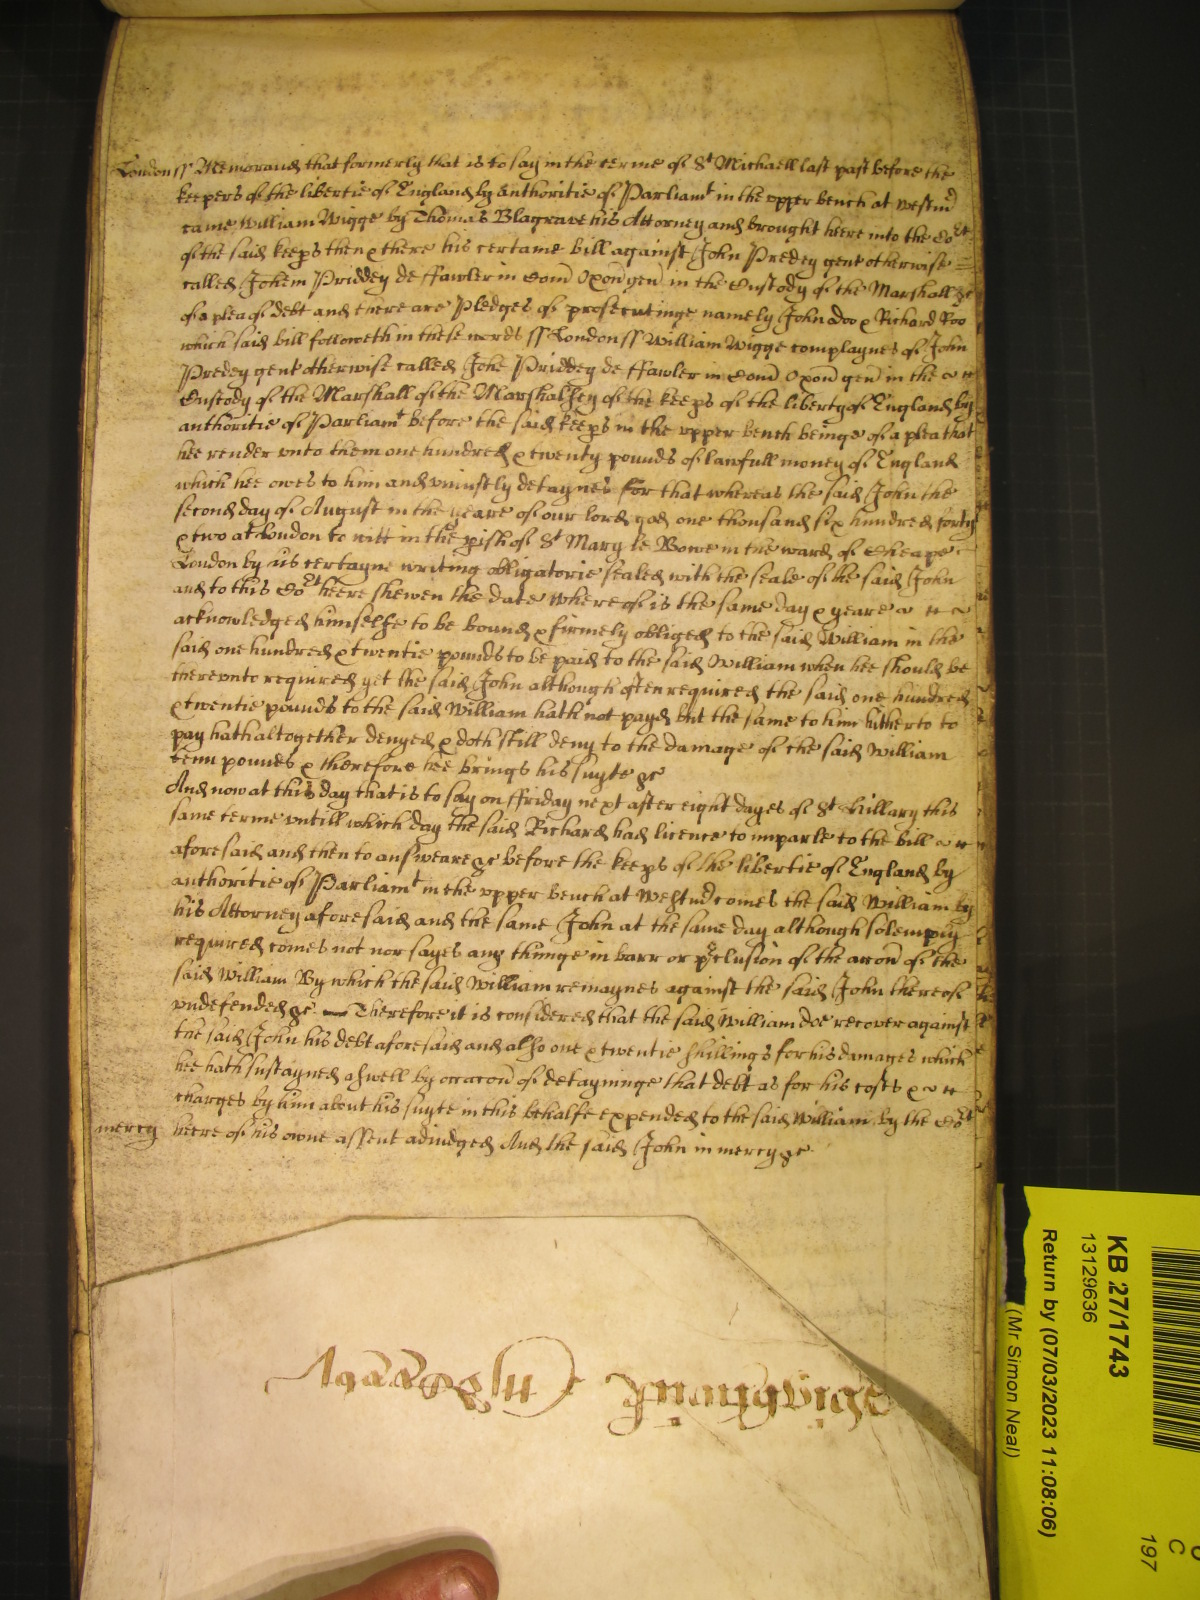 London ss Memorand that formerly that is to say in the terme of St Michaell last past before the
keepers of the libertie of England by authoritie of Parliamt in the upper bench at Westmr
came William Wigge by Thomas Blagrave his Attorney and brought heere into the Cort
of the said keeps then & there his certaine bill against John Predey gent otherwise
called Johem Priddey de ffawler in Com Oxon gen in the Custody of the Marshall &c
of a plea of debt and there are Pledges of prosecutinge namely John Doo & Richard Roo
which said bill followeth in these words ss London ss William Wigge complaynes of John
Predey gent otherwise called Johe Priddey de ffawler in Com Oxon gen in the
Custody of the Marshall of the Marshalsey of the keeps of the liberty of England by
authoritie of Parliamt before the said keeps in the upper bench beinge of a plea that
hee render unto them one hundred & twenty pounds of lawfull money of England
which hee owes to him and uniustly detaynes for that whereas the said John the
second day of August in the yeare of our lord god one thousand six hundred forty
& two at London to witt in the pish of St Mary le Bowe in the ward of Cheape
London by his certayne writing obligatorie sealed with the seale of the said John
and to this Cort heere shewen the date whereof is the same day & yeare
acknowledged himselfe to be bound & firmely obliged to the said William in the
said one hundred & twentie pounds to be paid to the said William when hee should be
thereunto required yet the said John although often required the said one hundred
& twentie pounds to the said William hath not payd but the same to him hitherto to
pay hath altogether denyed & doth still deny to the damage of the said William
tenn pounds & therefore hee brings his suyte &c
And now at this day that is to say on ffriday next after eight dayes of St Hillary this
same terme untill which day the said Richard had licence to imparle to the bill
aforesaid and then to answeare &c before the keeps of the libertie of England by
authoritie of Parliamt in the upper bench at Westmd comes the said William by
his Attorney aforesaid and the same John at the same day although solemply
required comes not nor sayes any thinge in barr or pclusion of the accon of the
said William By which the said William remaynes against the said John thereof
undefended &c Therefore it is considered that the said William doe recover against
the said John his debt aforesaid and also one & twentie shillings for his damages which
hee hath sustayned aswell by occacon of detayninge that debt as for his costs &
charges by him about his suyte in this behalfe expended to the said William by the Cort
mercy heere of his owne assent adiudged And the said John in mercy &c
KB 27/1743
13129636
Return by (07/03/2023 11:08:06)
(Mr Simon Neal)
C
197